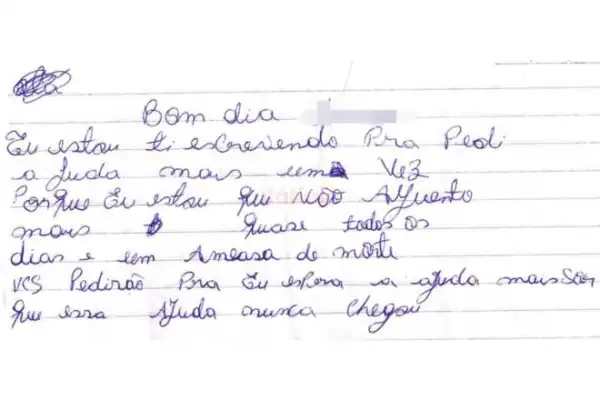 Bom dia
Eu estou ti escrevendo Pra Pedi
a Juda mais uma Vez
Porque Eu estou que não Aguento
mais quase todos os
dias e em Ameasa de morte
VCS Pedirão Pra Eu espera a ajuda mais
que essa Ajuda nunca Chegou